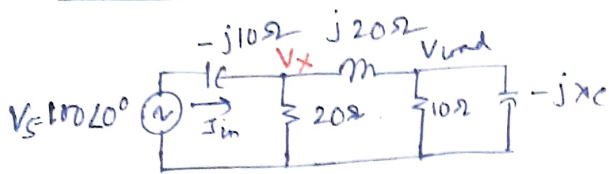 -j10Ω j20Ω
Vx Vload
Vs=100∠0° Iin 20Ω 10Ω -jxc